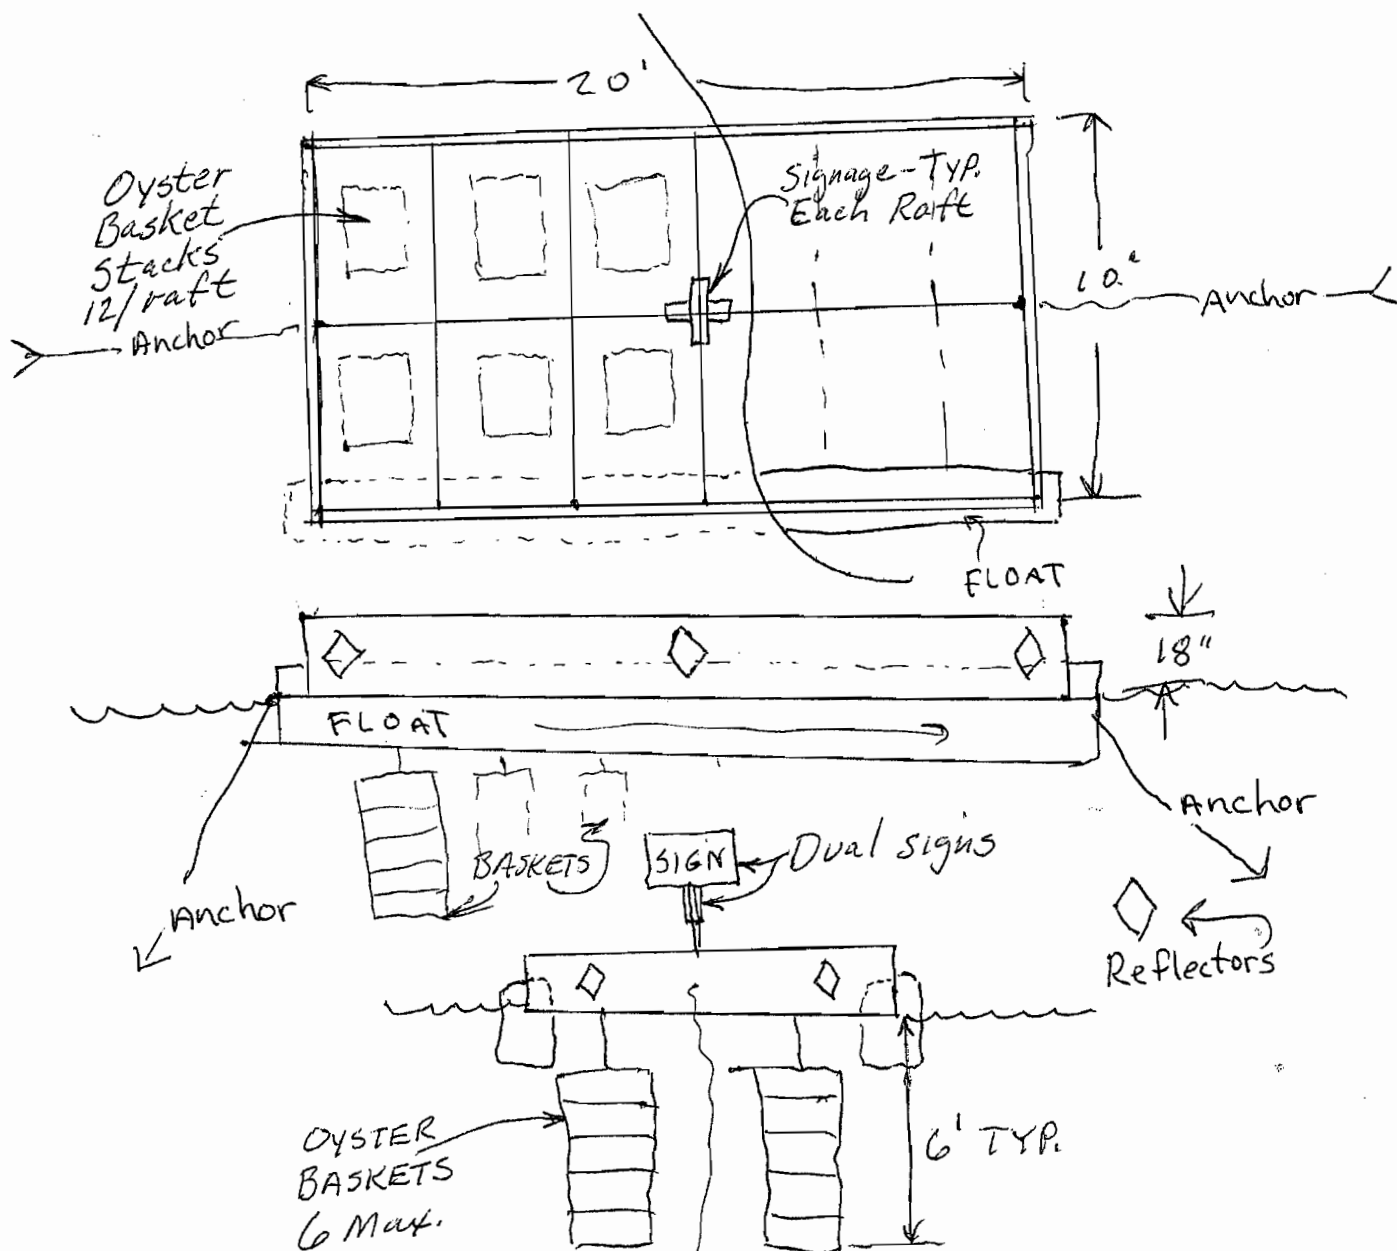 20'
Oyster
Basket
Stacks
12/raft
Signage-Typ.
Each Raft
10'
Anchor
Anchor
FLOAT
18"
FLOAT
Anchor
BASKETS
SIGN
Dual signs
Anchor
Reflectors
OYSTER
BASKETS
6 Max.
6' TYP.